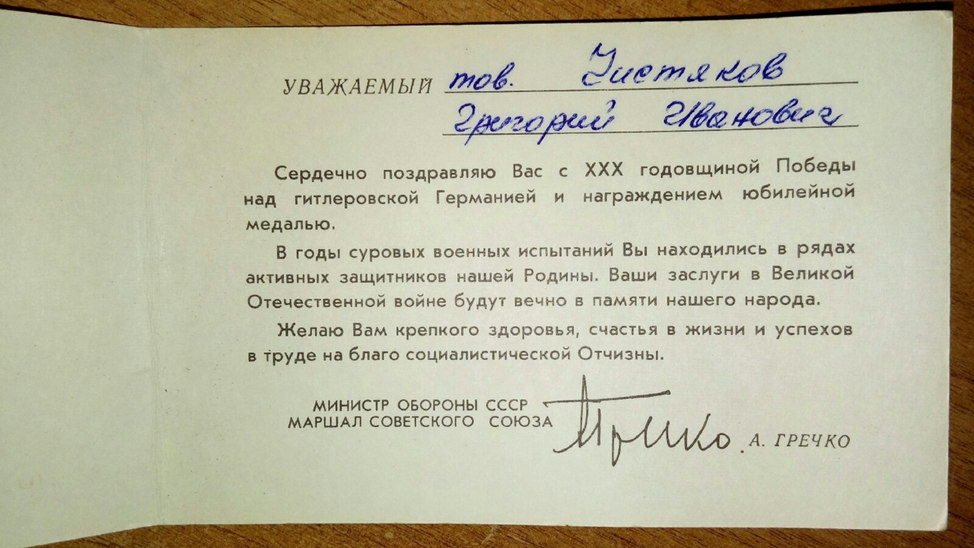 УВАЖАЕМЫЙ тов. Чистяков
Григорий Иванович
Сердечно поздравляю Вас с XXX годовщиной Победы
над гитлеровской Германией и награждением юбилейной
медалью.
В годы суровых военных испытаний Вы находились в рядах
активных защитников нашей Родины. Ваши заслуги в Великой
Отечественной войне будут вечно в памяти нашего народа.
Желаю Вам крепкого здоровья, счастья в жизни и успехов
в труде на благо социалистической Отчизны.
МИНИСТР ОБОРОНЫ СССР
МАРШАЛ СОВЕТСКОГО СОЮЗА
А. ГРЕЧКО